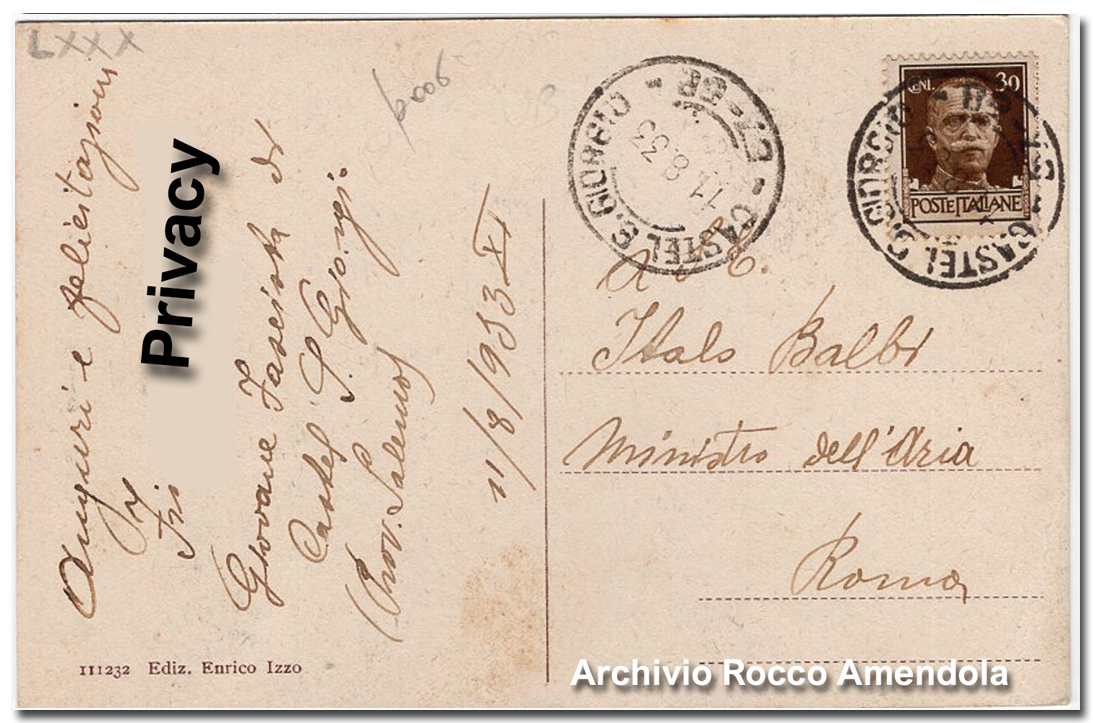 LXXX
6006
Auguri e felicitazioni
Privacy
Giovane Fascista di
Castel S. Giorgio
(Prov. Salerno)
11/8/1933 XI
111232 Ediz. Enrico Izzo
CASTEL S. GIORGIO
11.8.33
CENT. 30
POSTE ITALIANE
CASTEL S. GIORGIO
A S. E.
Italo Balbo
Ministro dell'Aria
Roma
Archivio Rocco Amendola